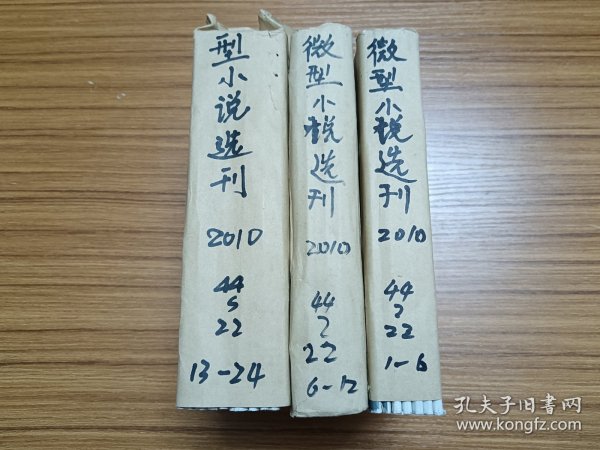 型小说选刊
2010
44
5
22
13-24
微型小说选刊
2010
44
2
22
6-12
微型小说选刊
2010
44
2
22
1-6
孔夫子旧书网
www.kongfz.com